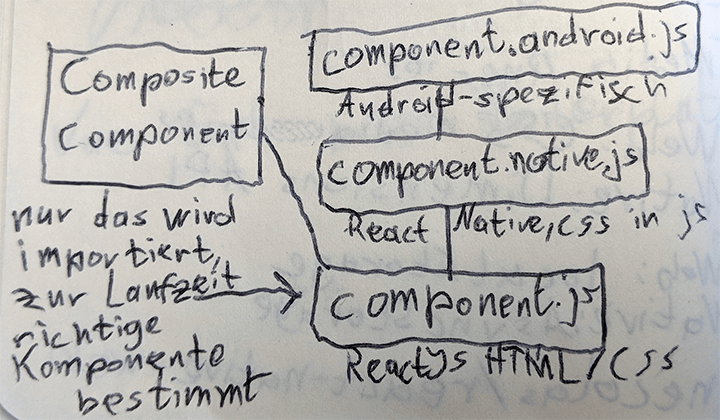 Composite
Component
nur das wird
importiert,
zur Laufzeit
richtige
Komponente
bestimmt
component.android.js
Android-spezifisch
component.native.js
React Native, CSS in js
component.js
Reactjs HTML/CSS